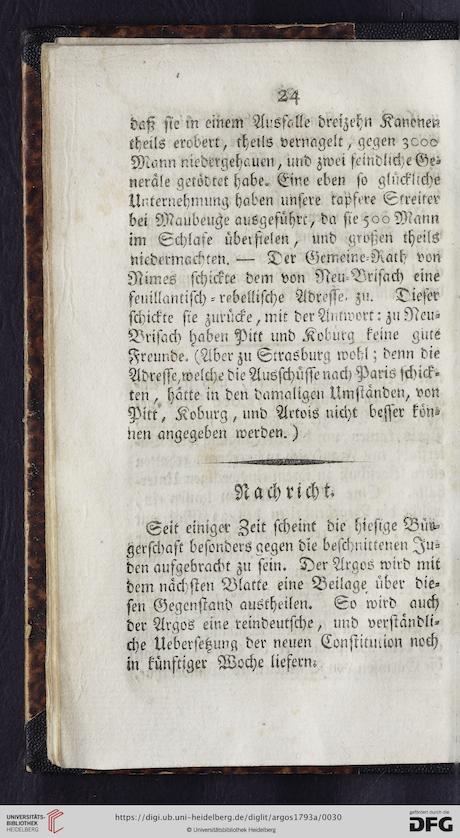 24
daß sie in einem Ausfalle dreizehn Kanonen
theils erobert, theils vernagelt, gegen 3000
Mann niedergehauen, und zwei feindliche Ge-
neräle getödtet habe. Eine eben so glückliche
Unternehmung haben unsere tapfere Streiter
bei Maubeuge ausgeführt, da sie 500 Mann
im Schlafe überfielen, und großen theils
niedermachten. — Der Gemeine-Rath von
Nimes schickte dem von Neu-Brisach eine
feuillantisch-rebellische Adresse. zu. Dieser
schickte sie zurücke, mit der Antwort: zu Neu-
Brisach haben Pitt und Koburg keine gute
Freunde. (Aber zu Strasburg wohl; denn die
Adresse, welche die Ausschüsse nach Paris schick-
ten, hätte in den damaligen Umständen, von
Pitt, Koburg, und Artois nicht besser kön-
nen angegeben werden.)
Nachricht.
Seit einiger Zeit scheint die hiesige Bür-
gerschaft besonders gegen die beschnittenen Ju-
den aufgebracht zu sein. Der Argos wird mit
dem nächsten Blatte eine Beilage über die-
sen Gegenstand austheilen. So wird auch
der Argos eine reindeutsche, und verständli-
che Uebersetzung der neuen Constitution noch
in künftiger Woche liefern.
UNIVERSITÄTS-
BIBLIOTHEK
HEIDELBERG
https://digi.ub.uni-heidelberg.de/diglit/argos1793a/0030
© Universitätsbibliothek Heidelberg
gefördert durch die
DFG